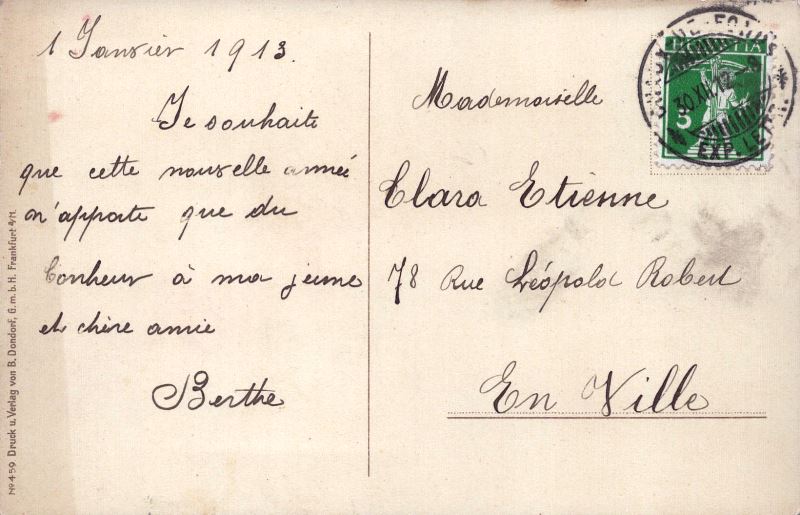 1 Janvier 1913.
Je souhaite
que cette nouvelle année
n'apporte que du
bonheur à ma jeune
et chère amie
Berthe
Mademoiselle
Clara Etienne
78 Rue Léopold Robert
En Ville
HELVETIA
5
CHAUX-DE-FONDS
30.XII.12
EXP. LETTR.
No 459 Druck u. Verlag von B. Dondorf, G.m.b.H. Frankfurt a/M.